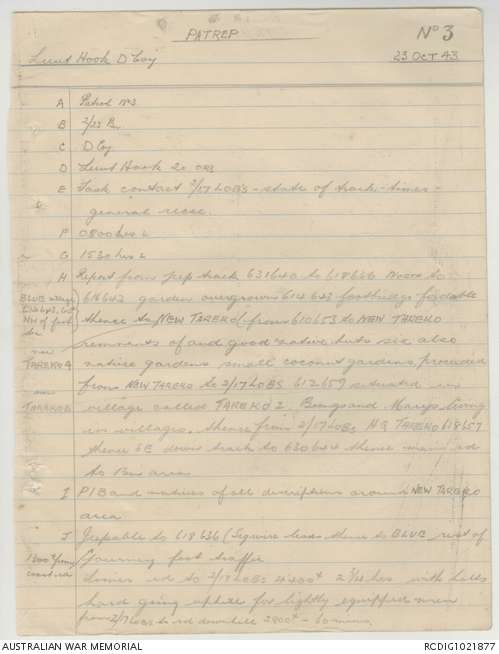 PATREP
No 3
Lieut Hook D Coy
23 OCT 43
A Patrol No 3
B 2/23 Bn
C D Coy
D Lieut Hook 20 ORs
E Task contact 2/17 LOBS - state of track - times -
general recce.
F 0800 hrs L
G 1530 hrs L
H Report from jeep track 631640 to 618636 North to
616643 garden overgrown 614643 footbridge fordable
thence to NEW TAREKO (from 610653 to NEW TAREKO
remnants of and good native huts six also
native gardens small coconut gardens, proceeded
from NEW TAREKO to 2/17 LOBS 612659 situated in
village called TAREKO 2 Bongs and Marys living
in villages. thence from 2/17 LOBs HQ TAREKO 618657
thence SE down track to 630644 thence main rd
to Bn area
BLUE
NW of foot
TAREKO
TAREKO
I PIB and natives of all descriptions around NEW TAREKO
area
J Jeepable to 618636 (Sigwire leads thence to BLUE rest of
journey foot traffic
1800 from
coast rd
rd to 2/17 LOBs 2 3/4 hrs with halts
hard going uphill for lightly equipped men
from 2/17 LOBS to rd downhill 2800+ - 60 mins
AUSTRALIAN WAR MEMORIAL
RCDIG1021877